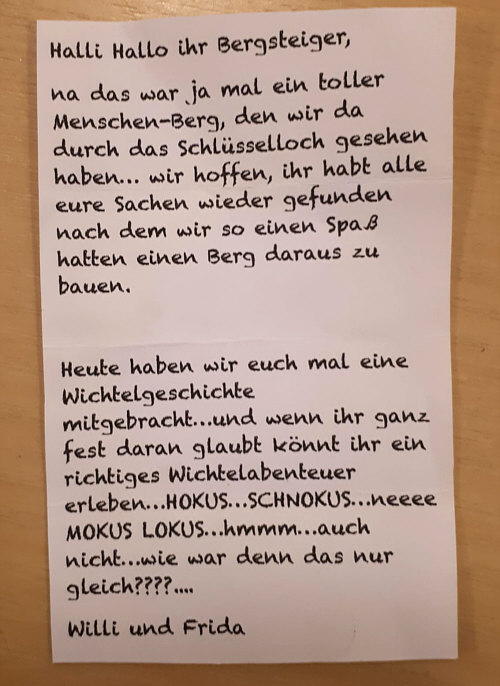 Halli Hallo ihr Bergsteiger,
na das war ja mal ein toller
Menschen-Berg, den wir da
durch das Schlüsselloch gesehen
haben... wir hoffen, ihr habt alle
eure Sachen wieder gefunden
nach dem wir so einen Spaß
hatten einen Berg daraus zu
bauen.
Heute haben wir euch mal eine
Wichtelgeschichte
mitgebracht...und wenn ihr ganz
fest daran glaubt könnt ihr ein
richtiges Wichtelabenteuer
erleben...HOKUS...SCHNOKUS...neeee
MOKUS LOKUS...hmmm...auch
nicht...wie war denn das nur
gleich????....
Willi und Frida